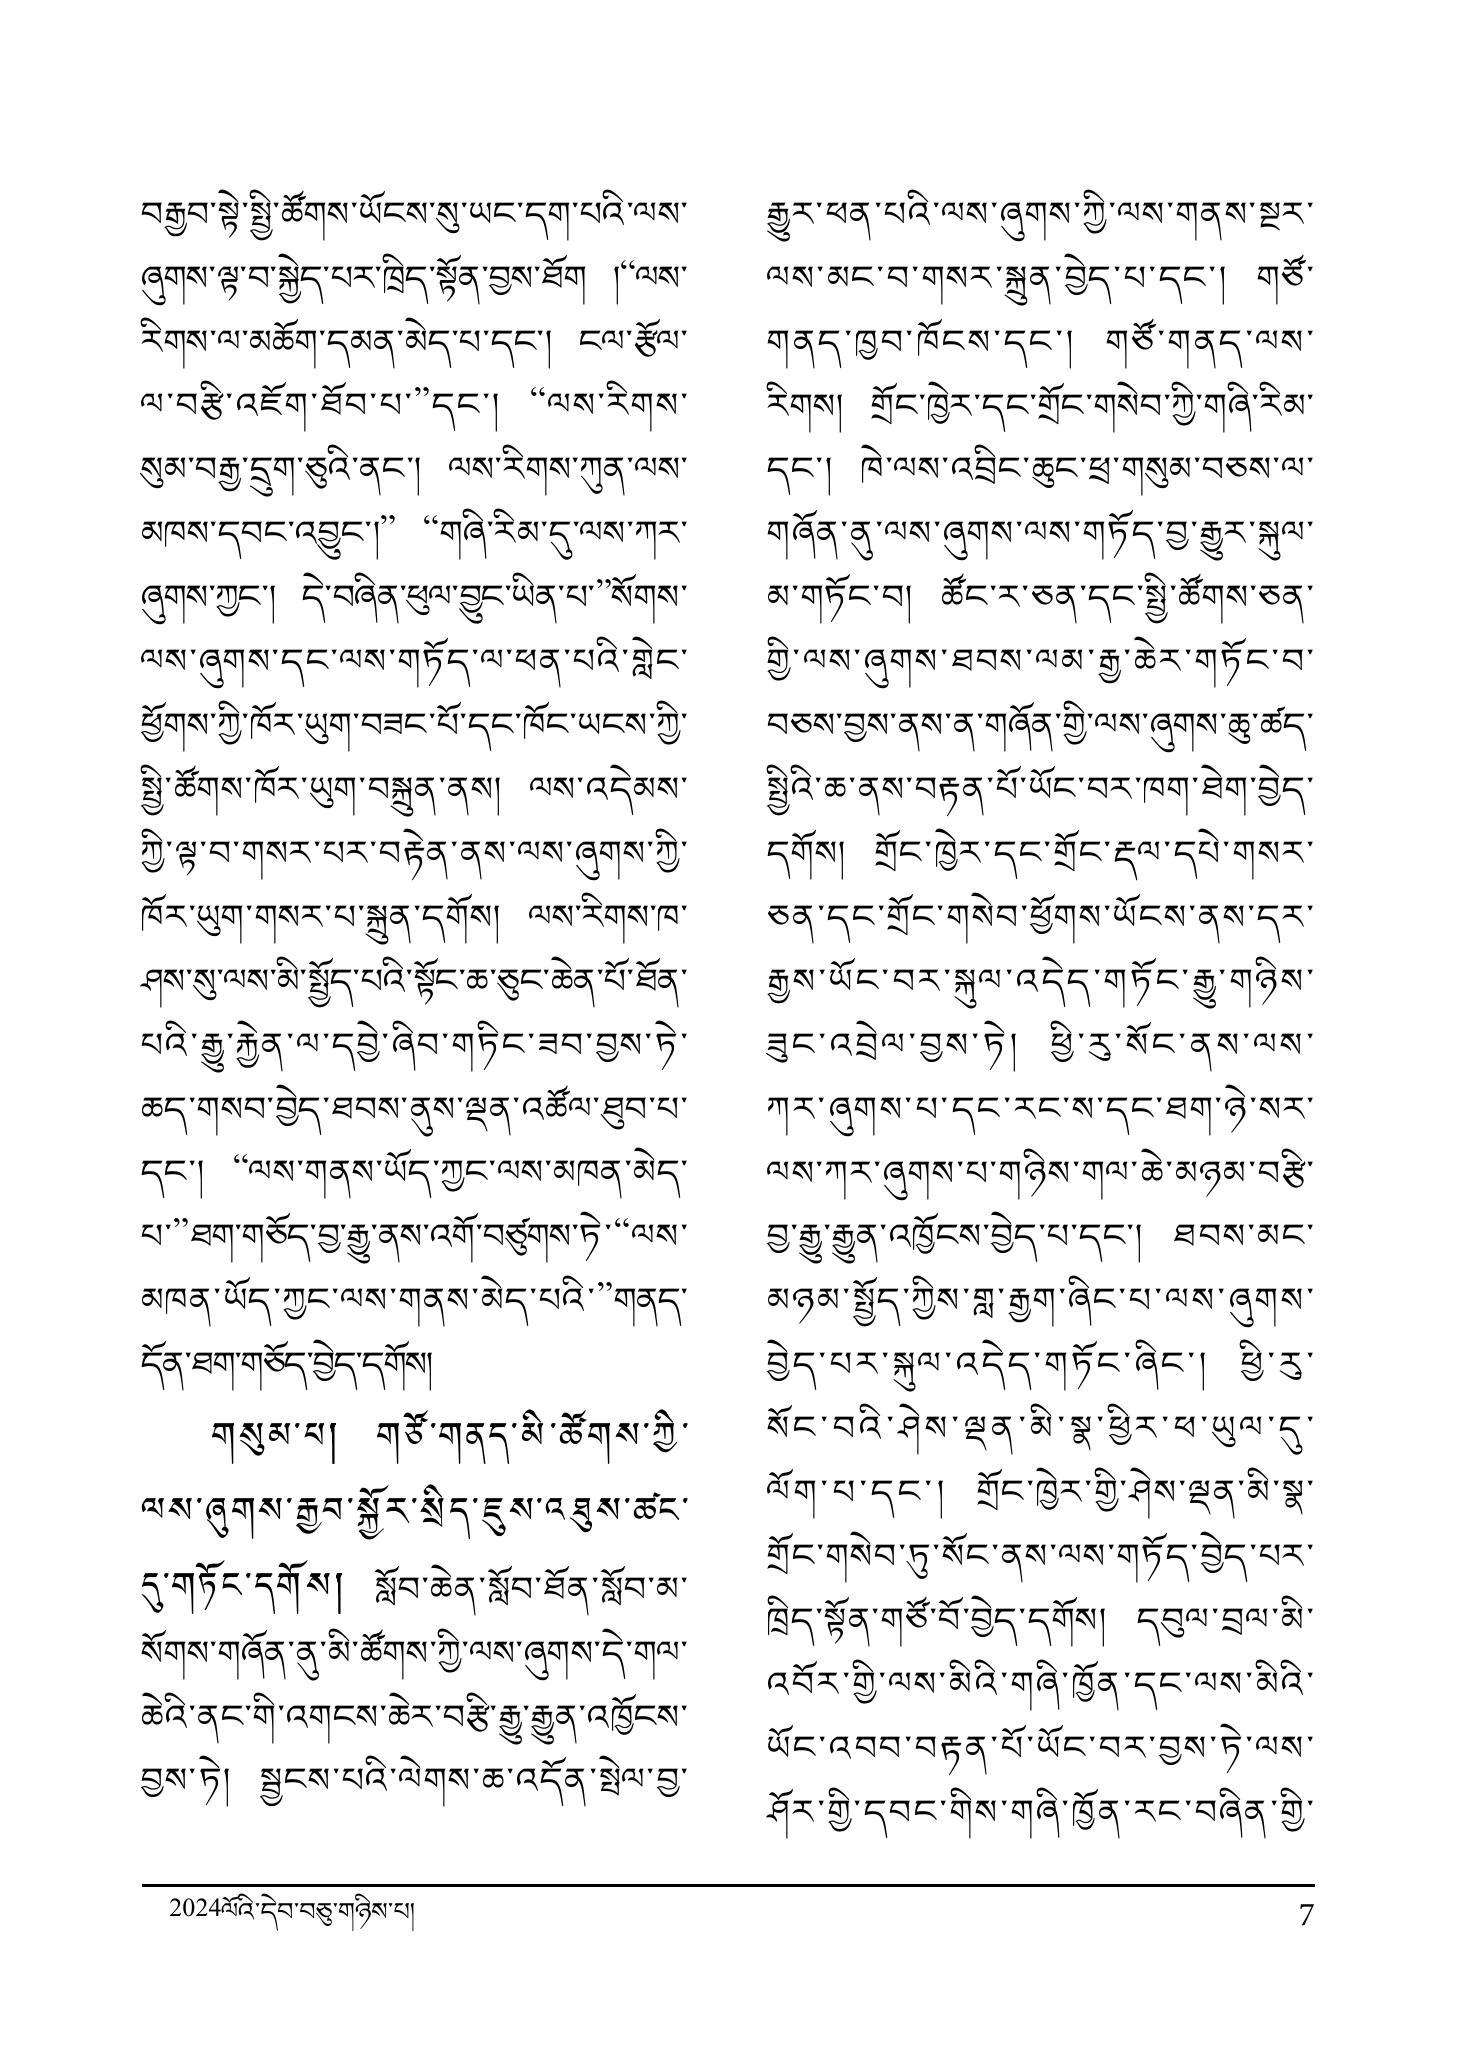 བརྒྱབ་སྟེ་སྤྱི་ཚོགས་ཡོངས་སུ་ཡང་དག་པའི་ལས་
ཞུགས་ལྟ་བ་སྐྱེད་པར་ཁྲིད་སྟོན་བྱས་ཐོག །“ལས་
རིགས་ལ་མཆོག་དམན་མེད་པ་དང་། ངལ་རྩོལ་
ལ་བརྩི་འཇོག་ཐོབ་པ་”དང་། “ལས་རིགས་
སུམ་བརྒྱ་དྲུག་ཅུའི་ནང་། ལས་རིགས་ཀུན་ལས་
མཁས་དབང་འབྱུང་།” “གཞི་རིམ་དུ་ལས་ཀར་
ཞུགས་ཀྱང་། དེ་བཞིན་ཕུལ་བྱུང་ཡིན་པ་”སོགས་
ལས་ཞུགས་དང་ལས་གཏོད་ལ་ཕན་པའི་གླེང་
ཕྱོགས་ཀྱི་ཁོར་ཡུག་བཟང་པོ་དང་ཁོང་ཡངས་ཀྱི་
སྤྱི་ཚོགས་ཁོར་ཡུག་བསྐྲུན་ནས། ལས་འདེམས་
ཀྱི་ལྟ་བ་གསར་པར་བརྟེན་ནས་ལས་ཞུགས་ཀྱི་
ཁོར་ཡུག་གསར་པ་སྐྲུན་དགོས། ལས་རིགས་ཁ་
ཤས་སུ་ལས་མི་སྤྱོད་པའི་སྟོང་ཆ་ཅུང་ཆེན་པོ་ཐོན་
པའི་རྒྱུ་རྐྱེན་ལ་དབྱེ་ཞིབ་གཏིང་ཟབ་བྱས་ཏེ་
ཆད་གསབ་བྱེད་ཐབས་ནུས་ལྡན་འཚོལ་ཐུབ་པ་
དང་། “ལས་གནས་ཡོད་ཀྱང་ལས་མཁན་མེད་
པ་”ཐག་གཅོད་བྱ་རྒྱུ་ནས་འགོ་བཙུགས་ཏེ་“ལས་
མཁན་ཡོད་ཀྱང་ལས་གནས་མེད་པའི་”གནད་
དོན་ཐག་གཅོད་བྱེད་དགོས།
གསུམ་པ། གཙོ་གནད་མི་ཚོགས་ཀྱི་
ལས་ཞུགས་རྒྱབ་སྐྱོར་སྲིད་ཇུས་འཐུས་ཚང་
དུ་གཏོང་དགོས། སློབ་ཆེན་སློབ་ཐོན་སློབ་མ་
སོགས་གཞོན་ནུ་མི་ཚོགས་ཀྱི་ལས་ཞུགས་དེ་གལ་
ཆེའི་ནང་གི་འགངས་ཆེར་བརྩི་རྒྱུ་རྒྱུན་འཁྱོངས་
བྱས་ཏེ། སྦྱངས་པའི་ལེགས་ཆ་འདོན་སྤེལ་བྱ་
རྒྱུར་ཕན་པའི་ལས་ཞུགས་ཀྱི་ལས་གནས་སྔར་
ལས་མང་བ་གསར་སྐྲུན་བྱེད་པ་དང་། གཙོ་
གནད་ཁྱབ་ཁོངས་དང་། གཙོ་གནད་ལས་
རིགས། གྲོང་ཁྱེར་དང་གྲོང་གསེབ་ཀྱི་གཞི་རིམ་
དང་། ཁེ་ལས་འབྲིང་ཆུང་ཕྲ་གསུམ་བཅས་ལ་
གཞོན་ནུ་ལས་ཞུགས་ལས་གཏོད་བྱ་རྒྱུར་སྐུལ་
མ་གཏོང་བ། ཚོང་ར་ཅན་དང་སྤྱི་ཚོགས་ཅན་
གྱི་ལས་ཞུགས་ཐབས་ལམ་རྒྱ་ཆེར་གཏོང་བ་
བཅས་བྱས་ནས་ན་གཞོན་གྱི་ལས་ཞུགས་ཆུ་ཚད་
སྤྱིའི་ཆ་ནས་བརྟན་པོ་ཡོང་བར་ཁག་ཐེག་བྱེད་
དགོས། གྲོང་ཁྱེར་དང་གྲོང་རྡལ་དཔེ་གསར་
ཅན་དང་གྲོང་གསེབ་ཕྱོགས་ཡོངས་ནས་དར་
རྒྱས་ཡོང་བར་སྐུལ་འདེད་གཏོང་རྒྱུ་གཉིས་
ཟུང་འབྲེལ་བྱས་ཏེ། ཕྱི་རུ་སོང་ནས་ལས་
ཀར་ཞུགས་པ་དང་རང་ས་དང་ཐག་ཉེ་སར་
ལས་ཀར་ཞུགས་པ་གཉིས་གལ་ཆེ་མཉམ་བརྩི་
བྱ་རྒྱུ་རྒྱུན་འཁྱོངས་བྱེད་པ་དང་། ཐབས་མང་
མཉམ་སྤྱོད་ཀྱིས་གླ་རྒྱག་ཞིང་པ་ལས་ཞུགས་
བྱེད་པར་སྐུལ་འདེད་གཏོང་ཞིང་། ཕྱི་རུ་
སོང་བའི་ཤེས་ལྡན་མི་སྣ་ཕྱིར་ཕ་ཡུལ་དུ་
ལོག་པ་དང་། གྲོང་ཁྱེར་གྱི་ཤེས་ལྡན་མི་སྣ་
གྲོང་གསེབ་ཏུ་སོང་ནས་ལས་གཏོད་བྱེད་པར་
ཁྲིད་སྟོན་གཙོ་བོ་བྱེད་དགོས། དབུལ་བྲལ་མི་
འབོར་གྱི་ལས་མིའི་གཞི་ཁྱོན་དང་ལས་མིའི་
ཡོང་འབབ་བརྟན་པོ་ཡོང་བར་བྱས་ཏེ་ལས་
ཤོར་གྱི་དབང་གིས་གཞི་ཁྱོན་རང་བཞིན་གྱི་
2024ལོའི་དེབ་བཅུ་གཉིས་པ། 7